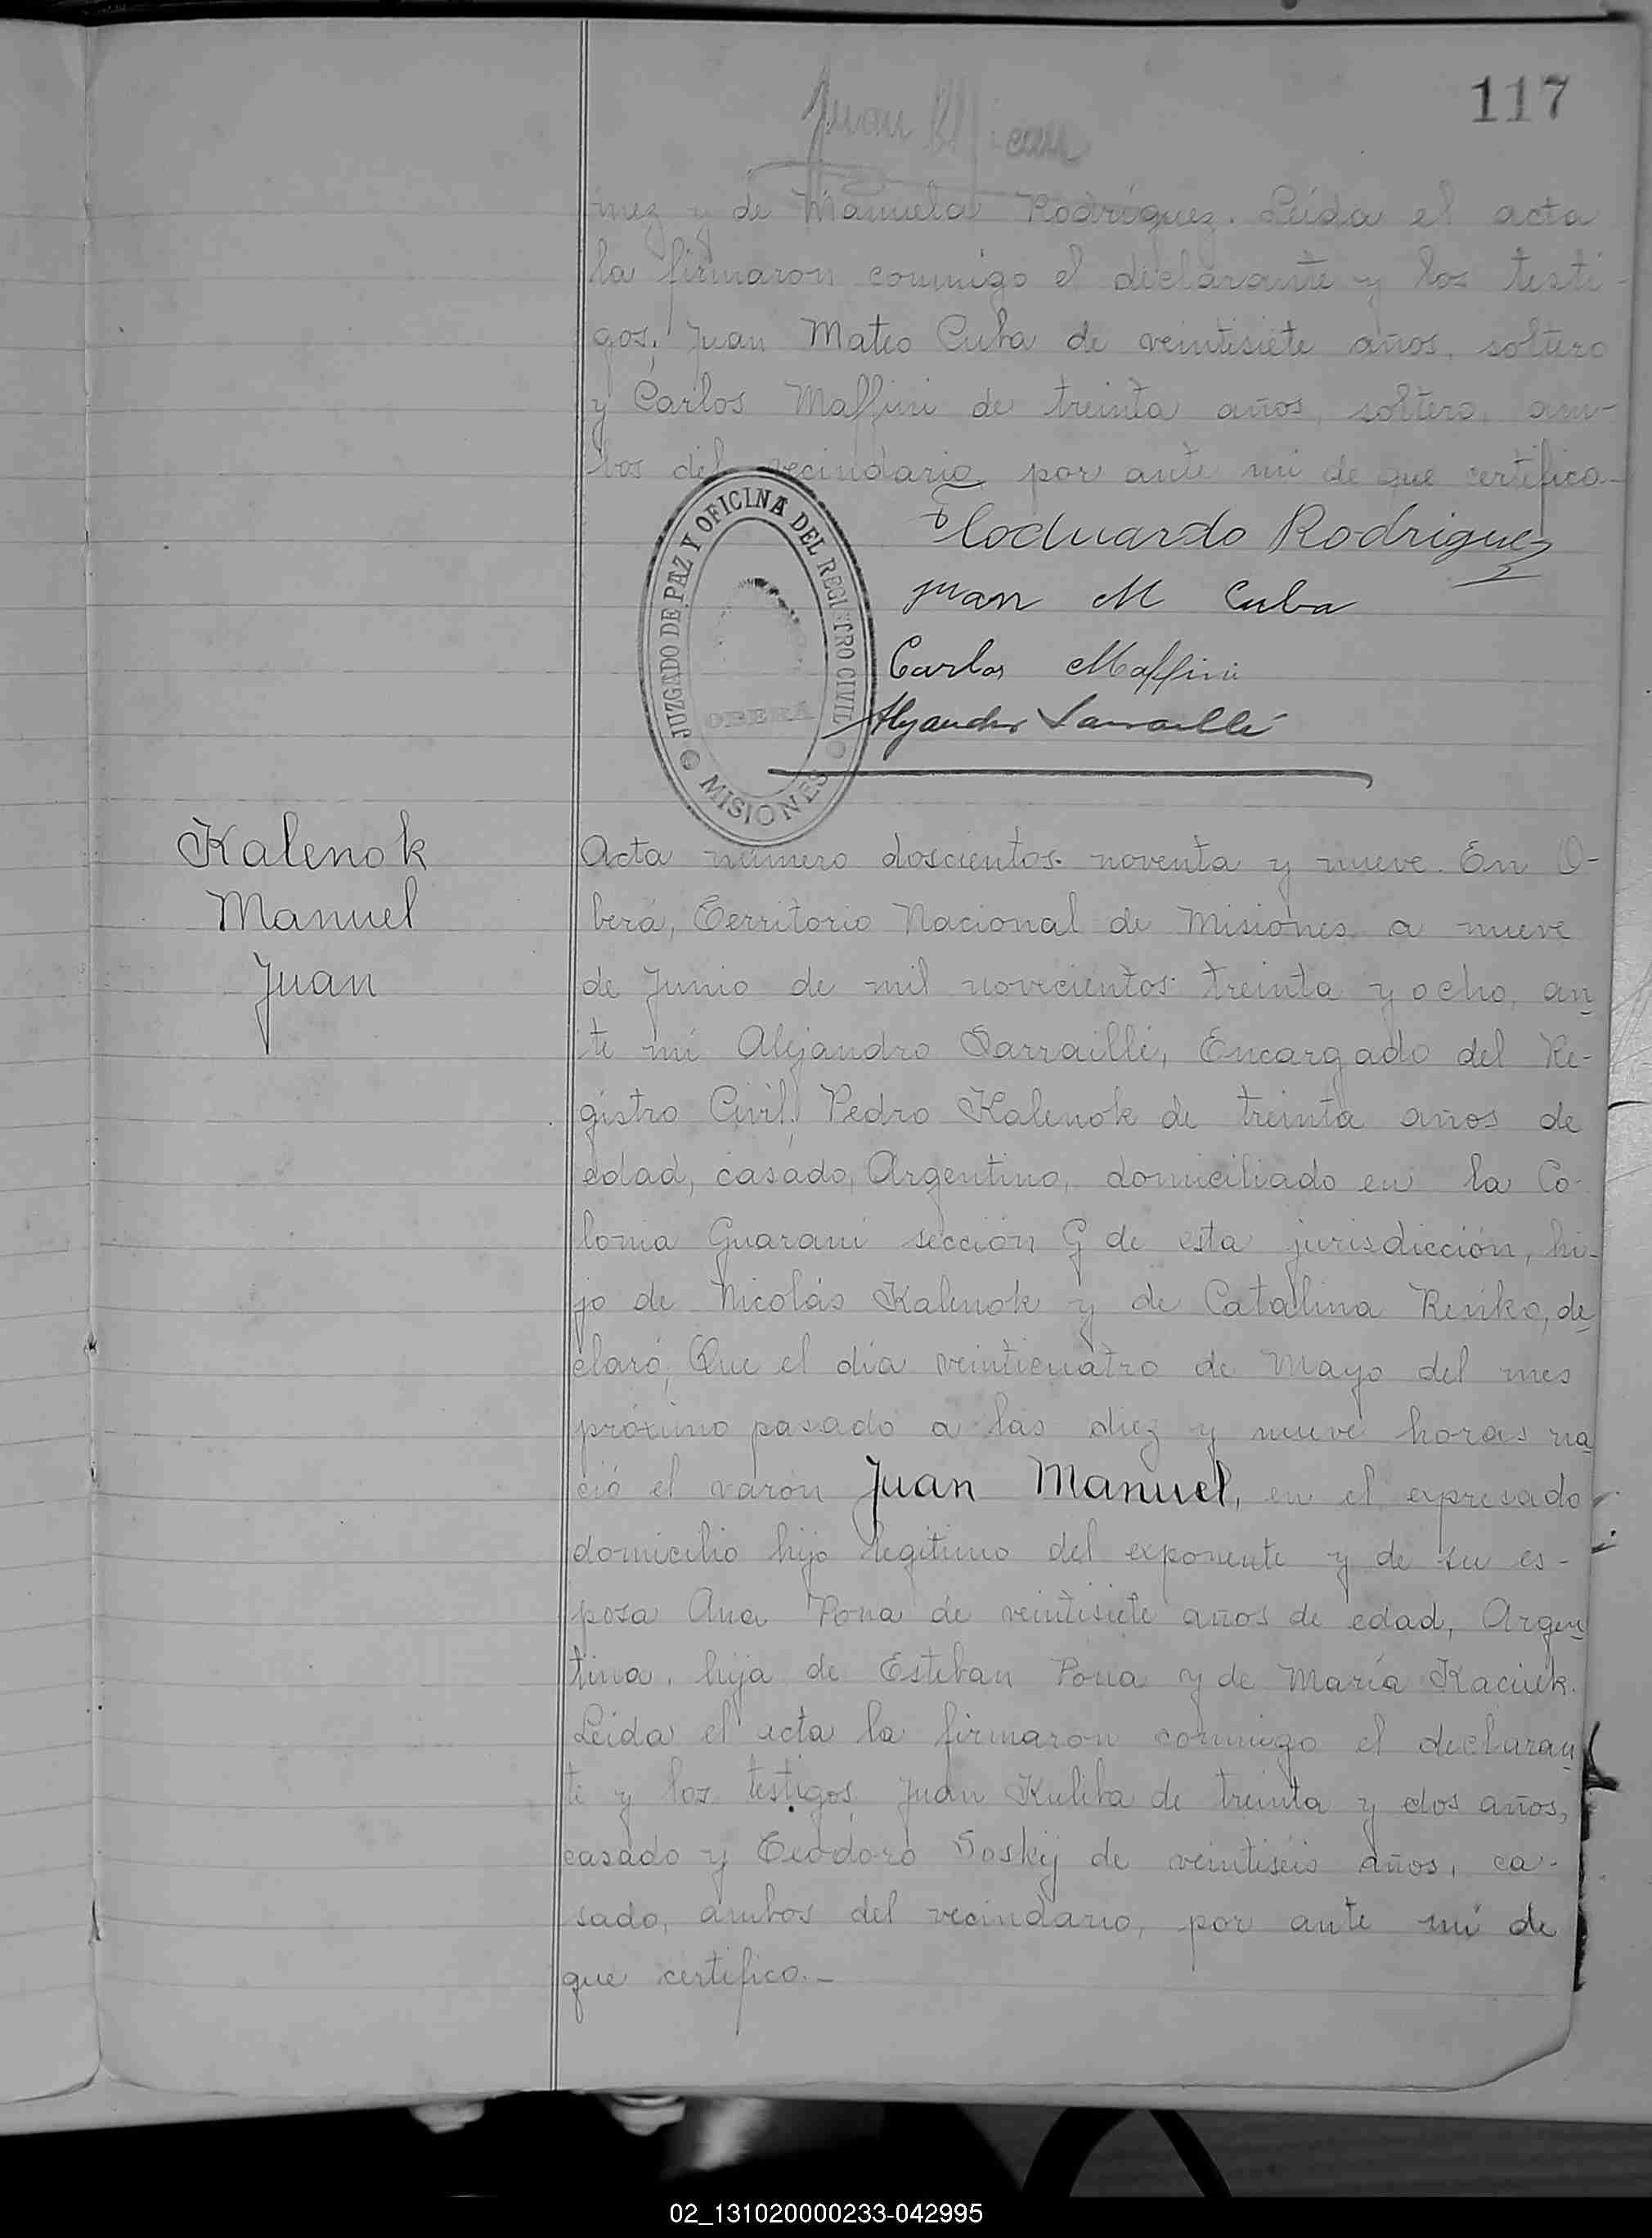 117
Juan
nez y de Manuela Rodríguez. Leída el acta
la firmaron conmigo el declarante y los testi-
gos, Juan Mateo Cuba de veintisiete años, soltero
y Carlos Maffini de treinta años, soltero, am-
bos del vecindario, por ante mi de que certifico.-
Floduardo Rodriguez
Juan M Cuba
Carlos Maffini
Alejandro Sarraillé
JUZGADO DE PAZ Y OFICINA DEL REGISTRO CIVIL
OBERÁ
MISIONES
Kalenok
Manuel
Juan
Acta número doscientos noventa y nueve. En O-
berá, Territorio Nacional de Misiones a nueve
de Junio de mil novecientos treinta y ocho, an
te mi Alejandro Sarraillé, Encargado del Re-
gistro Civil, Pedro Kalenok de treinta años de
edad, casado, Argentino, domiciliado en la Co-
lonia Guaraní sección G de esta jurisdicción, hi-
jo de Nicolás Kalenok y de Catalina Reniko, de
claró, Que el día veinticuatro de Mayo del mes
próximo pasado a las diez y nueve horas na
ció el varón Juan Manuel, en el expresado
domicilio hijo legítimo del exponente y de su es-
posa Ana Pona de veintisiete años de edad, Argen
tina, hija de Esteban Pona y de María Kaciuk.
Leída el acta la firmaron conmigo el declaran
te y los testigos, Juan Kuliba de treinta y dos años,
casado y Teodoro Soskij de veintiseis años, ca-
sado, ambos del vecindario, por ante mi de
que certifico.-
02_131020000233-042995